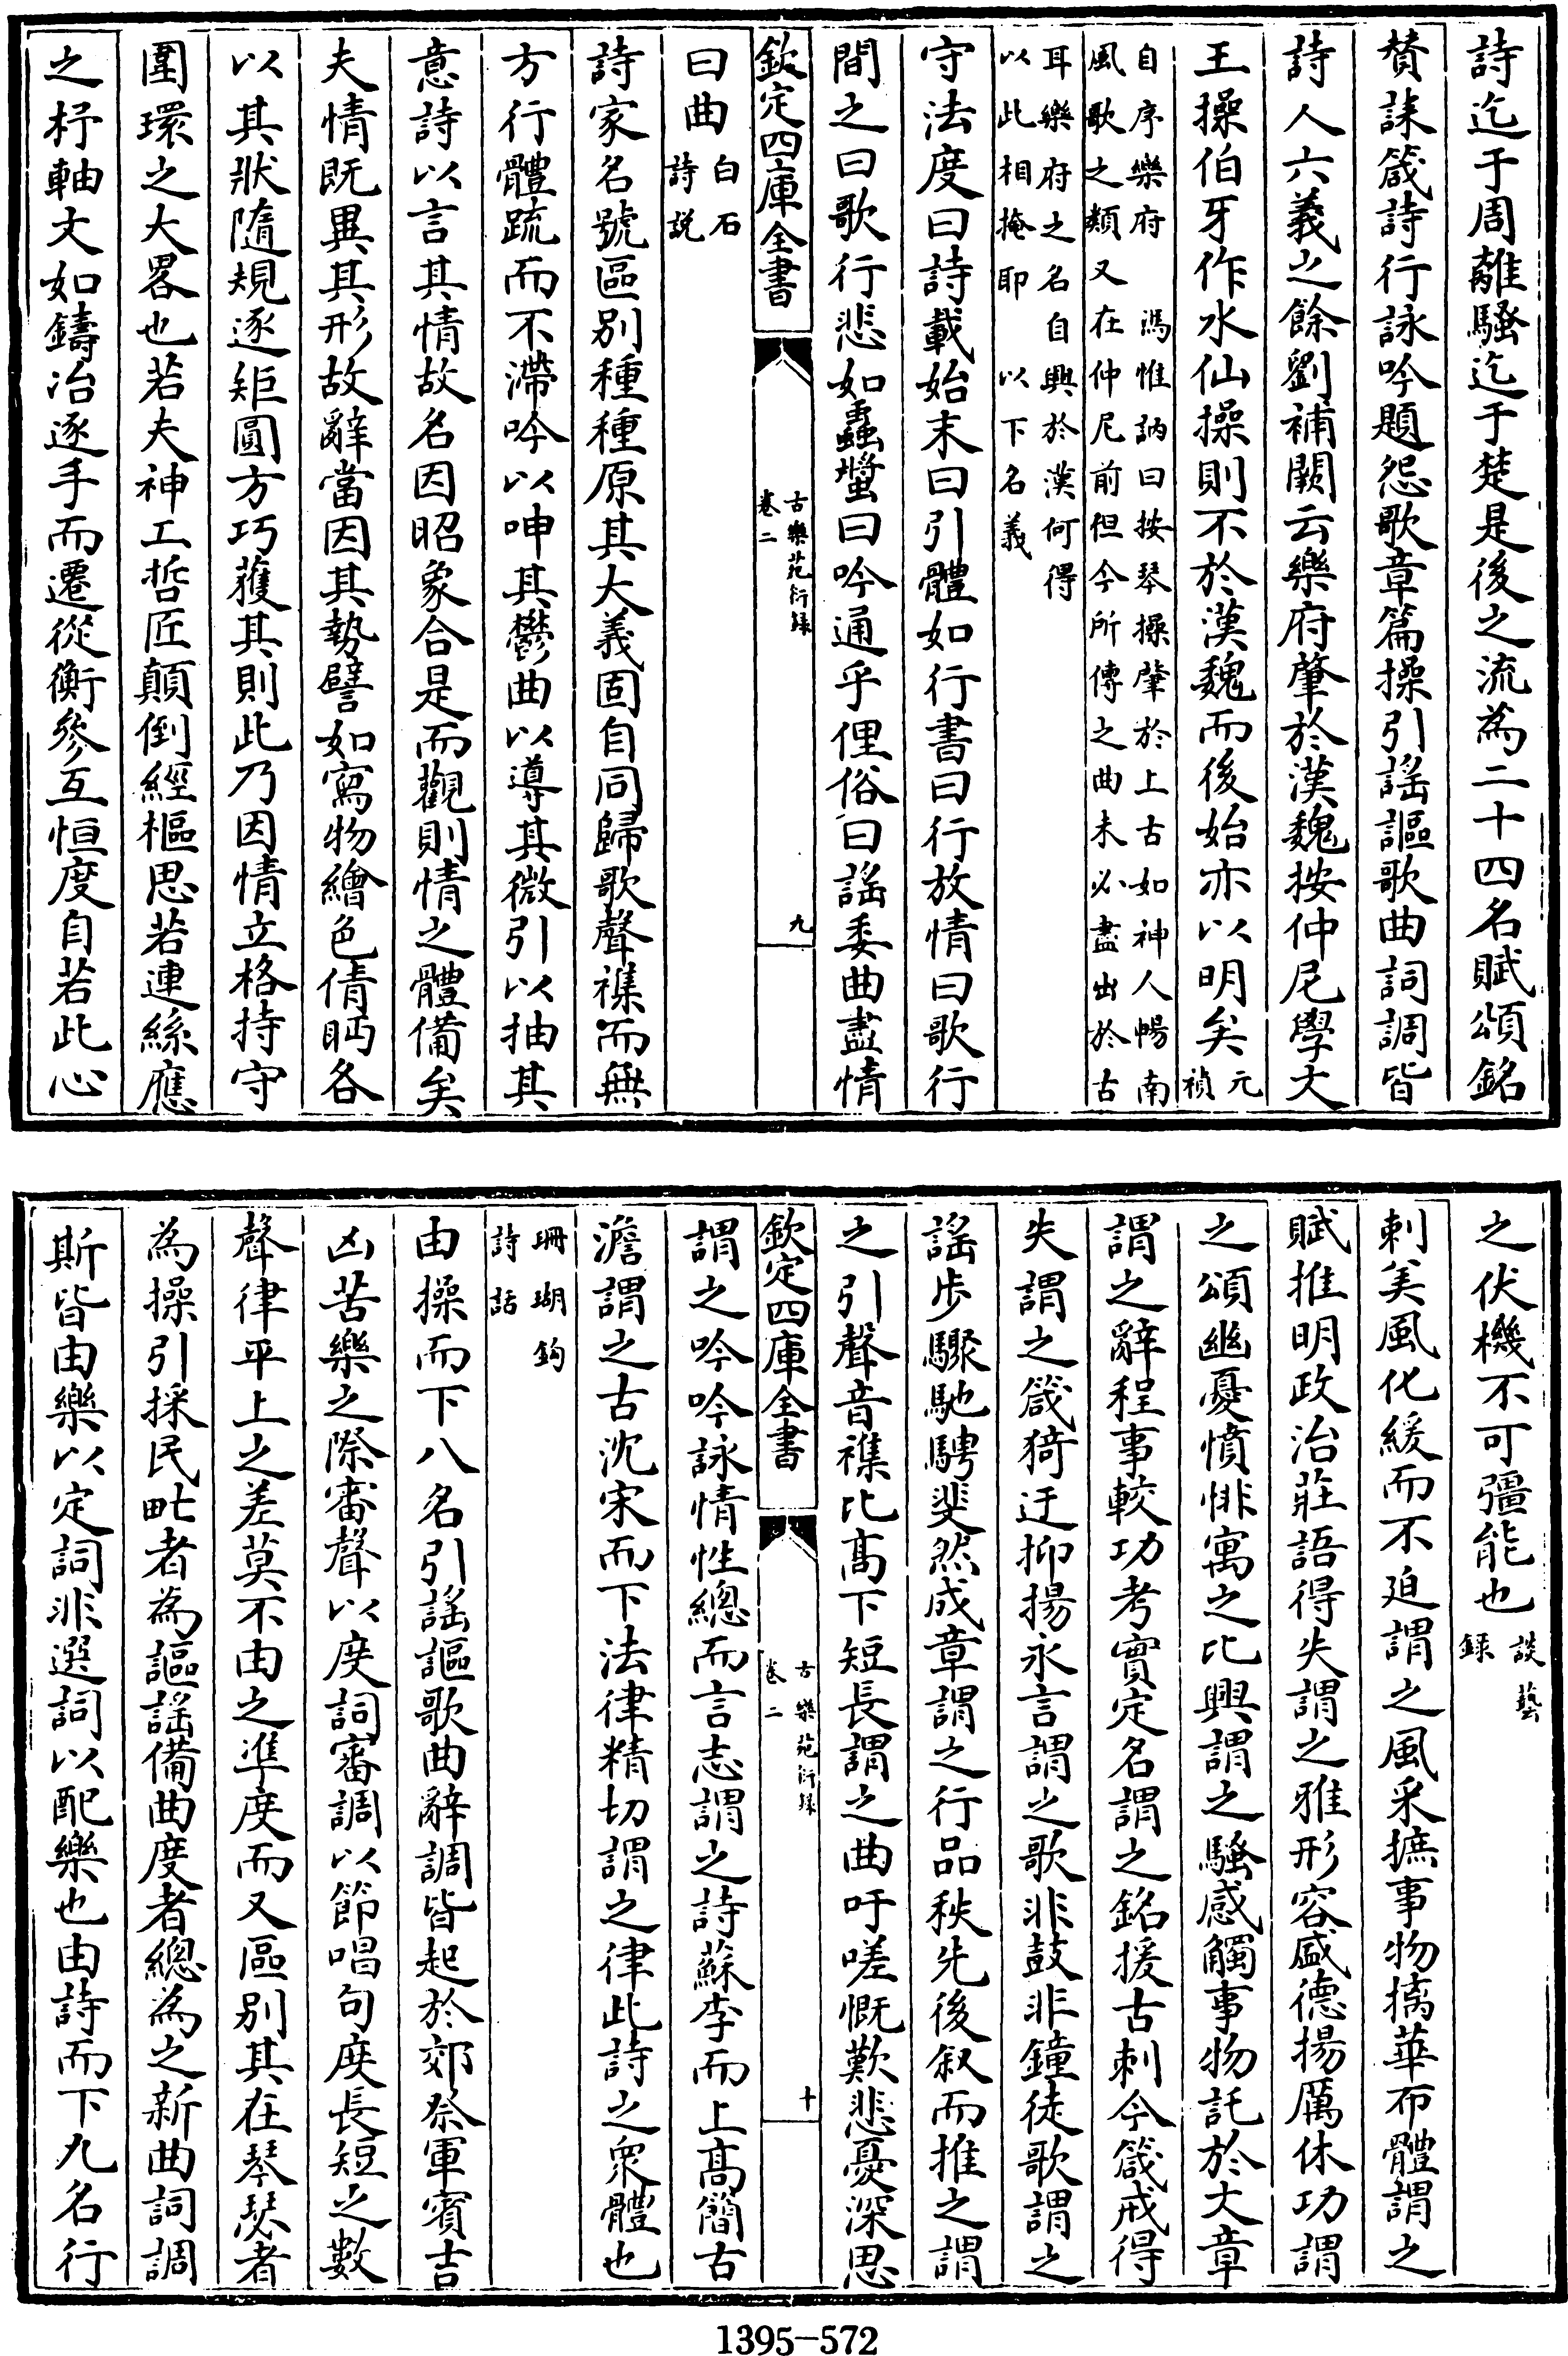 詩迄于周離騷迄于楚是後之流為二十四名賦頌銘
賛誄箴詩行詠吟題怨歌章篇操引謡謳歌曲詞調皆
詩人六義之餘劉補闕云樂府肇於漢魏按仲尼學文
王操伯牙作水仙操則不於漢魏而後始亦以明矣元
禎
自序樂府　馮惟訥曰按琴操肇於上古如神人暢南
風歌之類又在仲尼前但今所傳之曲未必盡出於古
耳樂府之名自興於漢何得
以此相掩耶　以下名義
守法度曰詩載始末曰引體如行書曰行放情曰歌行
間之曰歌行悲如蟲螿曰吟通乎俚俗曰謡委曲盡情
欽定四庫全書
古樂苑衍録
卷二
九
曰曲白石
詩説
詩家名號區别種種原其大義固自同歸歌聲襍而無
方行體疏而不滯吟以呻其鬱曲以導其微引以抽其
意詩以言其情故名因昭象合是而觀則情之體備矣
夫情既異其形故辭當因其勢譬如寫物繪色倩盻各
以其狀隨規逐矩圓方巧蒦其則此乃因情立格持守
圍環之大畧也若夫神工哲匠顛倒經樞思若連絲應
之杼軸文如鑄冶逐手而遷從衡參互恒度自若此心
之伏機不可彊能也談藝
録
刺美風化緩而不迫謂之風采摭事物摛華布體謂之
賦推明政治莊語得失謂之雅形容盛德揚厲休功謂
之頌幽憂憤悱寓之比興謂之騷感觸事物託於大章
謂之辭程事較功考實定名謂之銘援古刺今箴戒得
失謂之箴猗迂抑揚永言謂之歌非鼓非鐘徒歌謂之
謡步驟馳騁斐然成章謂之行品秩先後叙而推之謂
之引聲音襍比髙下短長謂之曲吁嗟慨歎悲憂深思
欽定四庫全書
古樂苑衍録
卷二
十
謂之吟吟詠情性總而言志謂之詩蘇李而上髙簡古
澹謂之古沈宋而下法律精切謂之律此詩之衆體也
珊瑚鈎
詩話
由操而下八名引謡謳歌曲辭調皆起於郊祭軍賓吉
凶苦樂之際審聲以度詞審調以節唱句度長短之數
聲律平上之差莫不由之凖度而又區别其在琴瑟者
為操引採民甿者為謳謡備曲度者總為之新曲詞調
斯皆由樂以定詞非選詞以配樂也由詩而下九名行
1395-572